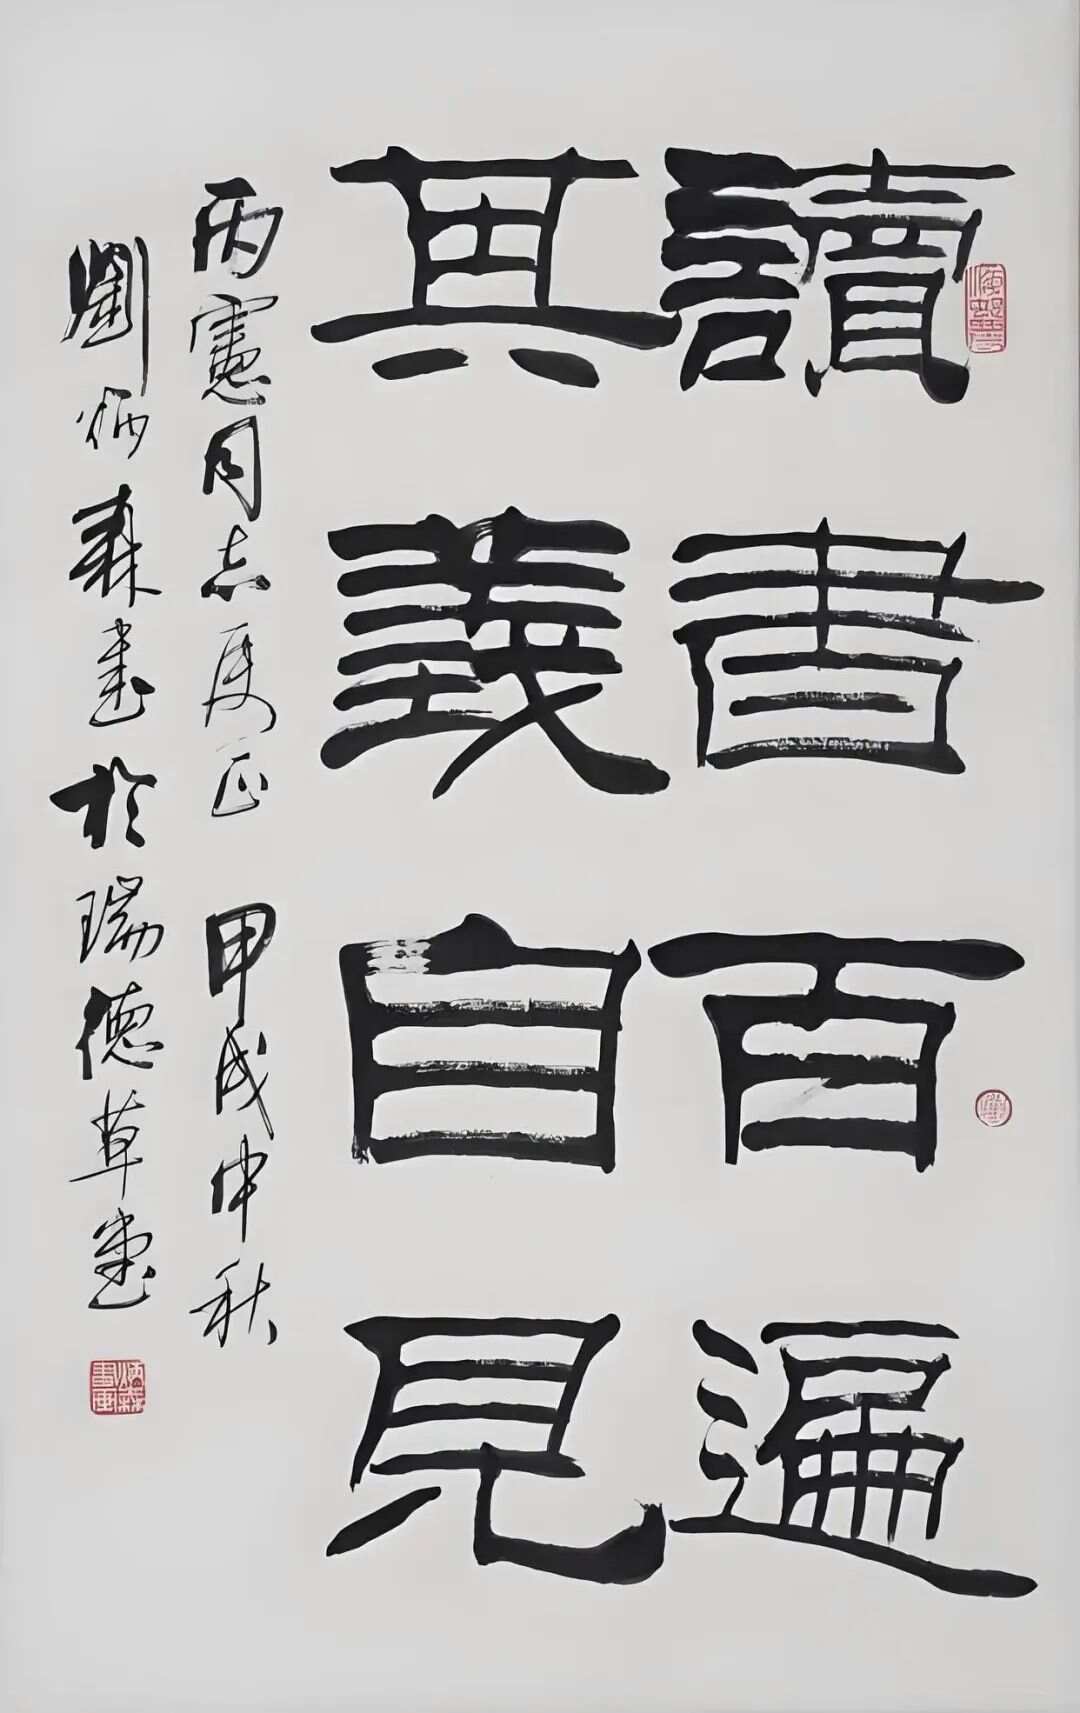 讀書百遍
其義自見
丙憲同志屬正 甲戌中秋
劉炳森書於瑞德草堂